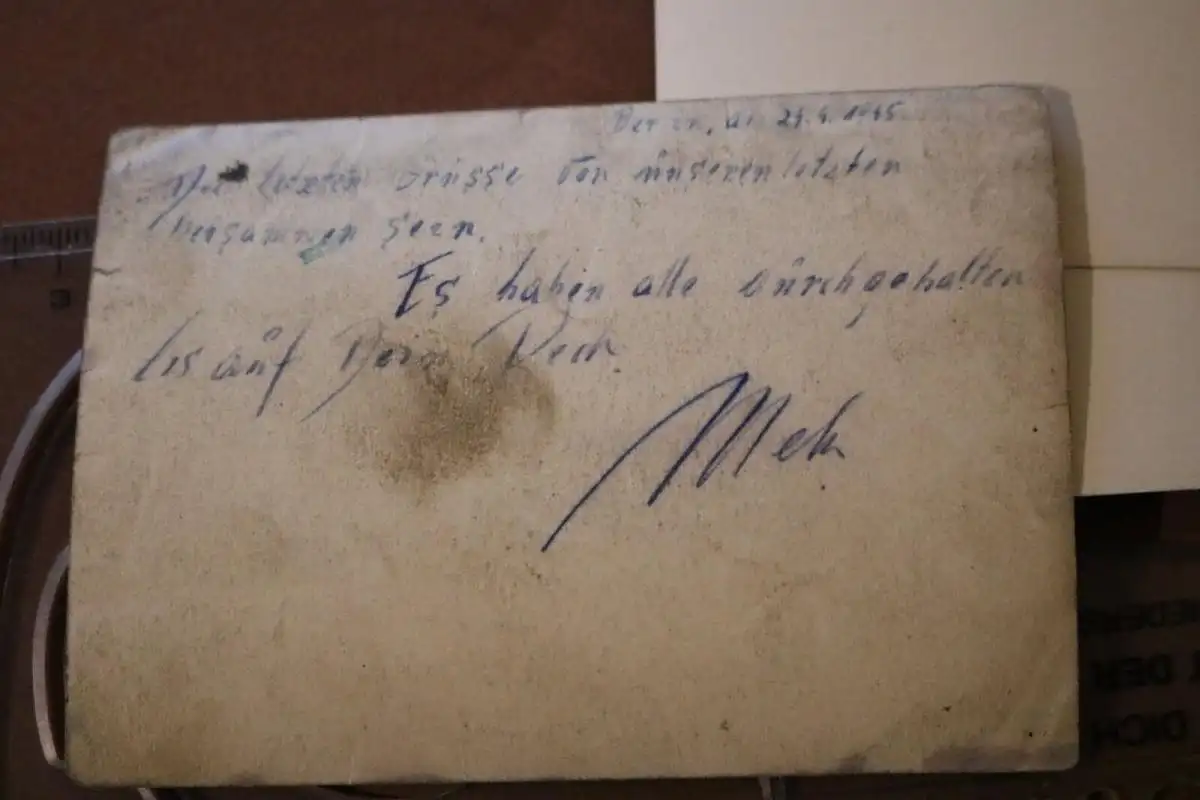 Berlin, den 24.4.1945.
Die letzten Grüsse von unseren letzten
beisammen sein.
Es haben alle durchgehalten
bis auf Dein
Mek
DER
DICH